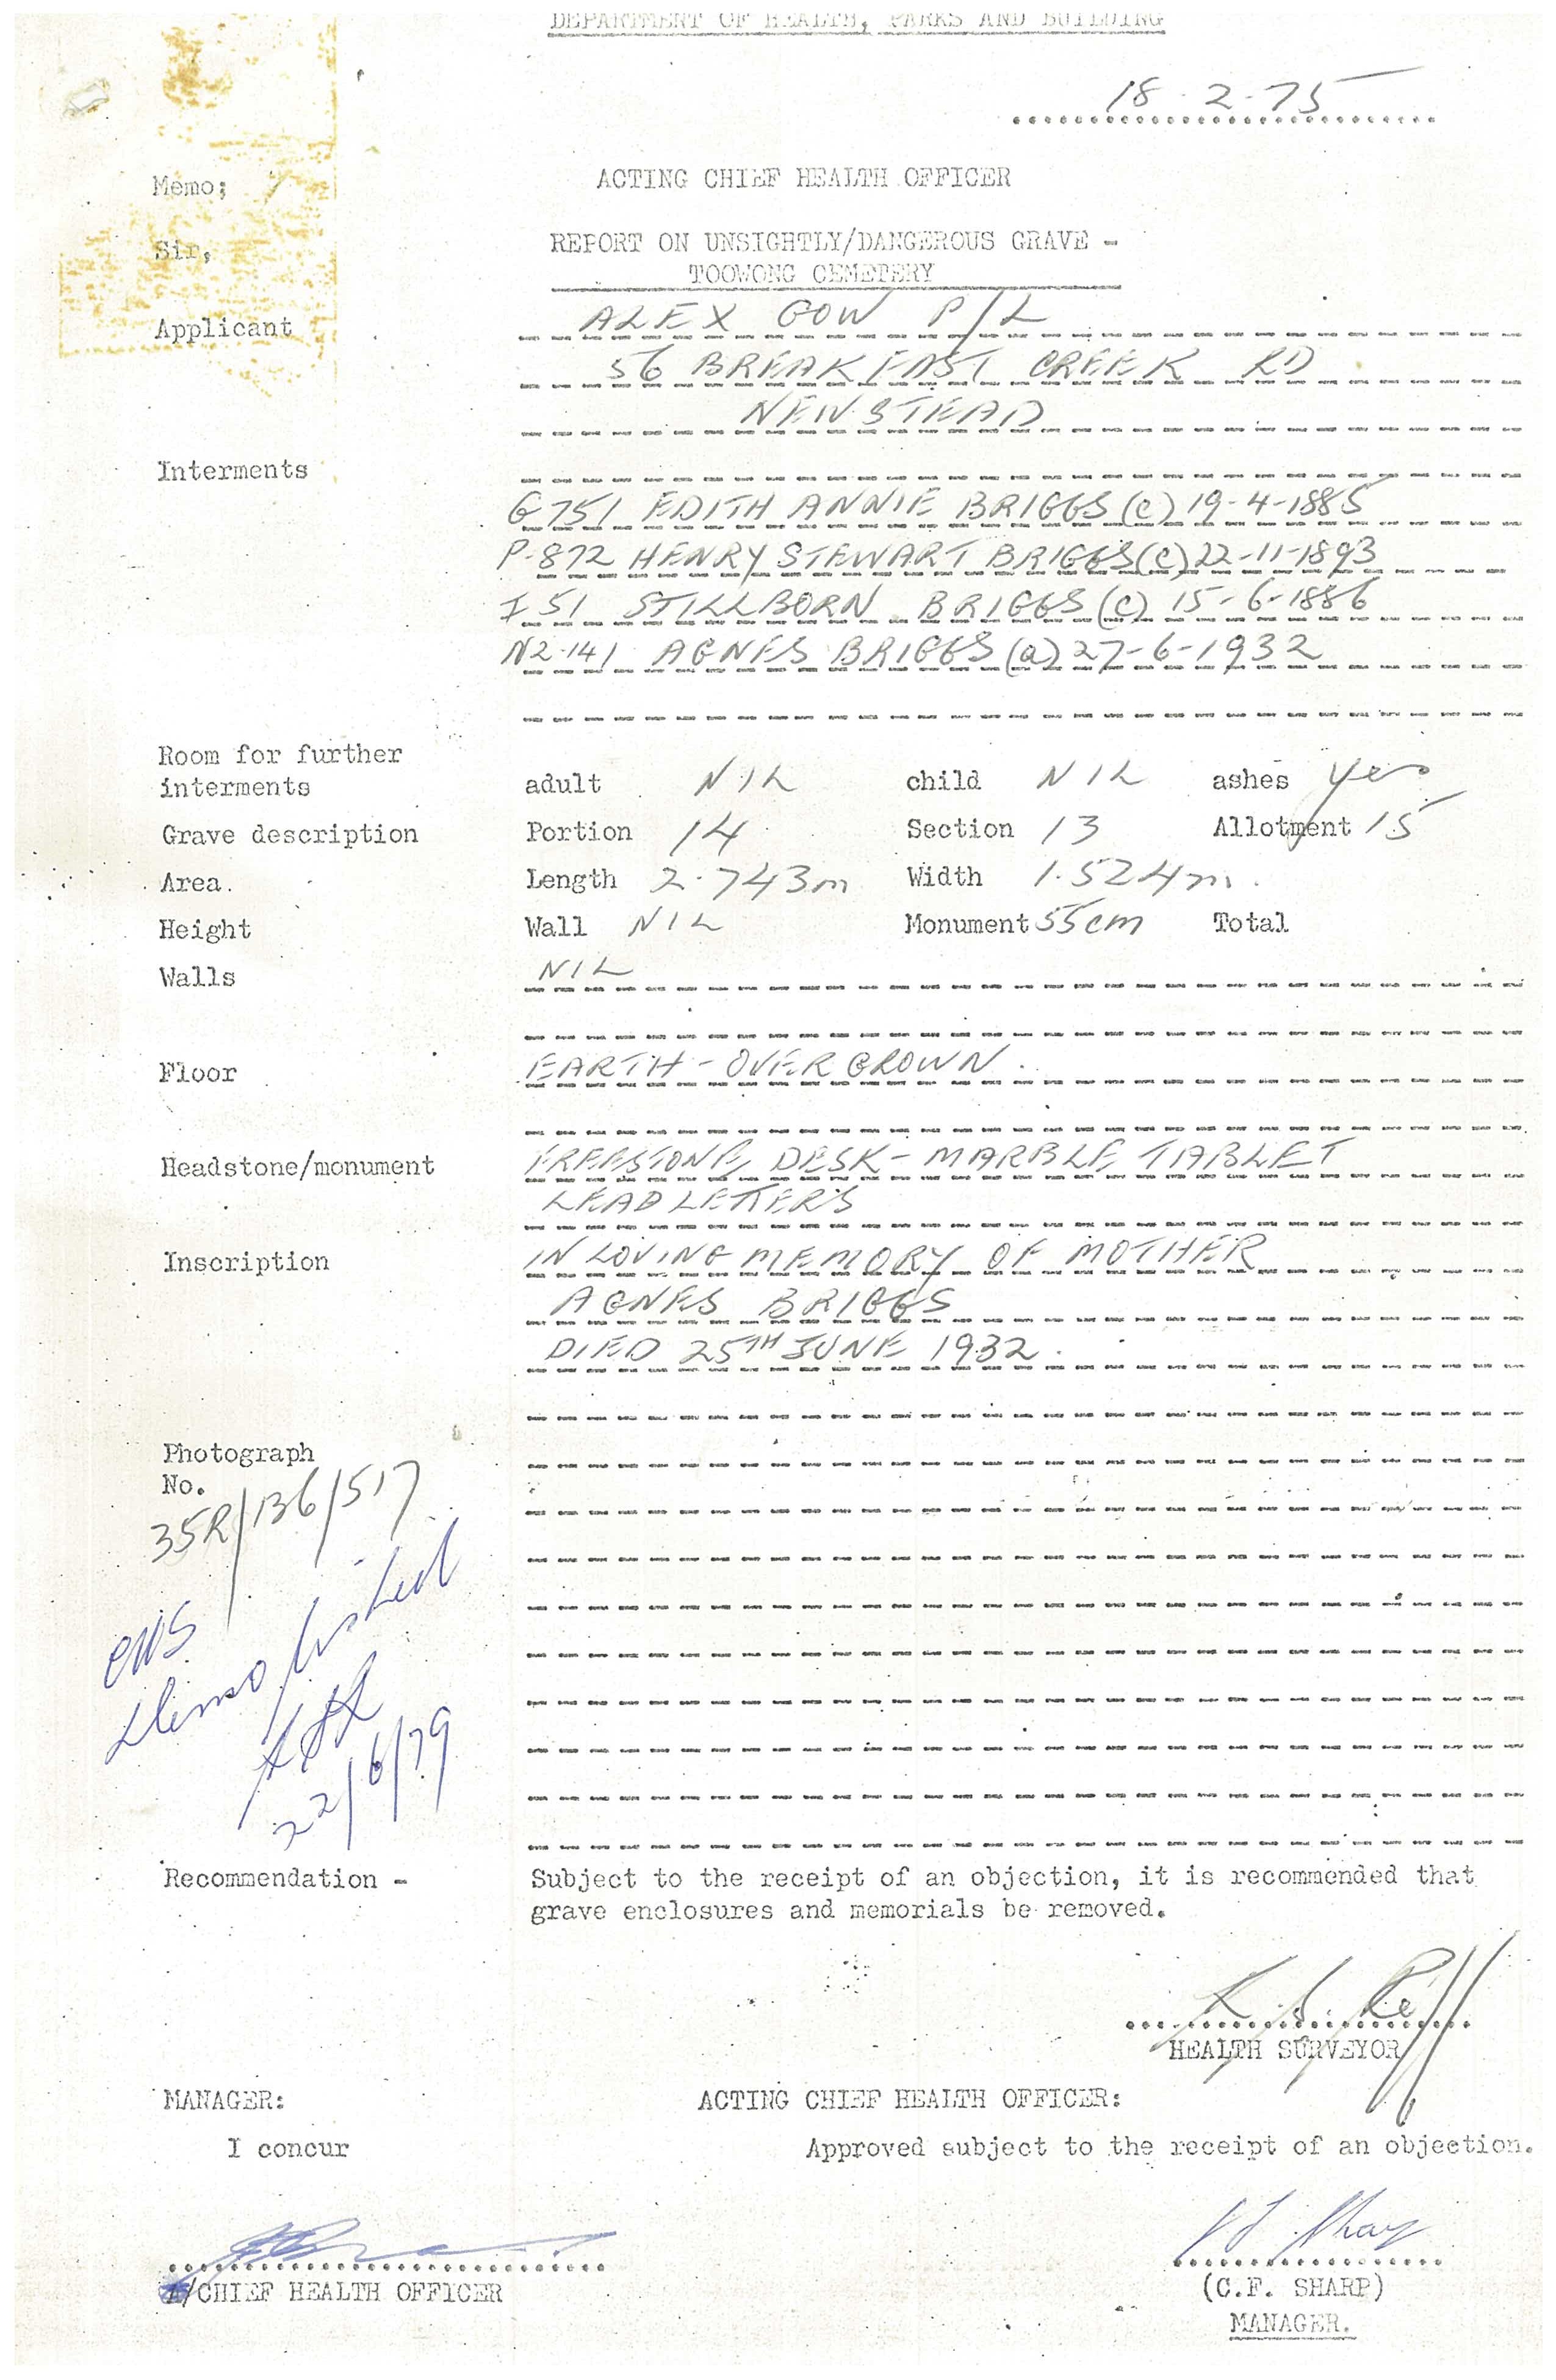 DEPARTMENT OF HEALTH, PARKS AND BUILDING
18-2-75
Memo; ACTING CHIEF HEALTH OFFICER
Sir, REPORT ON UNSIGHTLY/DANGEROUS GRAVE -
TOOWONG CEMETERY
Applicant ALEX GOW P/L
56 BREAKFAST CREEK RD
NEWSTEAD
Interments
G751 EDITH ANNIE BRIGGS (C) 19-4-1885
P-872 HENRY STEWART BRIGGS (C) 22-11-1893
I 51 STILLBORN BRIGGS (C) 15-6-1886
N2-141 AGNES BRIGGS (a) 27-6-1932
Room for further
interments adult NIL child NIL ashes yes
Grave description Portion 14 Section 13 Allotment 15
Area. Length 2.743m Width 1.524m.
Height Wall NIL Monument 55cm Total
Walls NIL
Floor EARTH - OVERGROWN.
Headstone/monument FREESTONE DESK - MARBLE TABLET
LEAD LETTERS
Inscription IN LOVING MEMORY OF MOTHER
AGNES BRIGGS
DIED 25TH JUNE 1932.
Photograph
No.
35R/136/517
22/6/79
Recommendation - Subject to the receipt of an objection, it is recommended that
grave enclosures and memorials be removed.
HEALTH SURVEYOR
MANAGER: ACTING CHIEF HEALTH OFFICER:
I concur Approved subject to the receipt of an objection.
A/CHIEF HEALTH OFFICER (C.F. SHARP)
MANAGER.